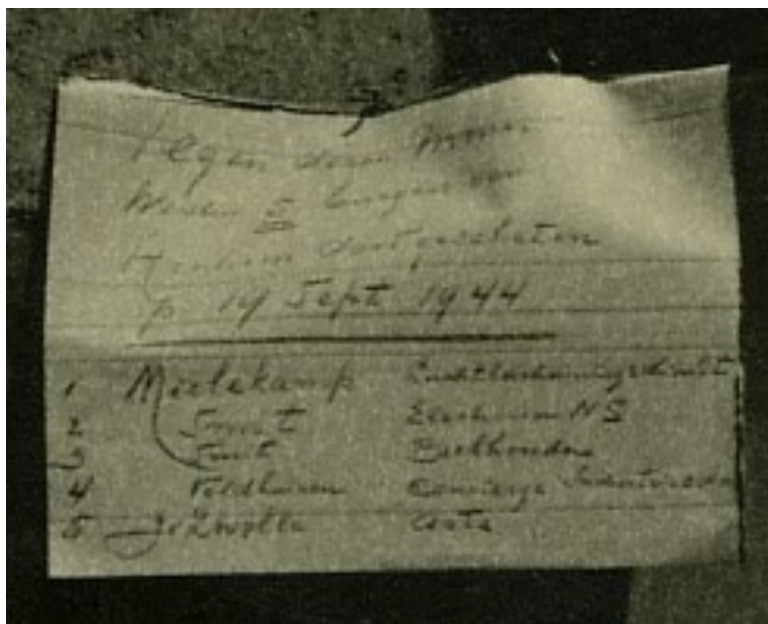 Tegen dezen muur
Werden 5 burgers van
Arnhem doodgeschoten
op 19 Sept 1944
1 Mielekamp Luchtbeschermingsdienst
2 Smit Electricien NS
3 Smit Boekhouder
4 Veldhuizen Concierge
5 v Zwolle Arts